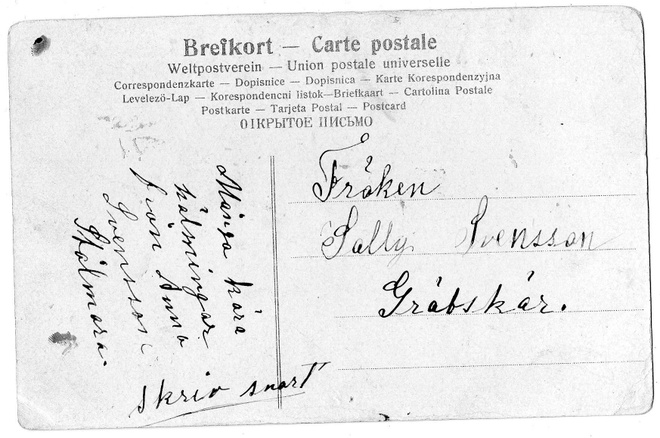 Brefkort — Carte postale
Weltpostverein — Union postale universelle
Correspondenzkarte — Dopisnice — Dopisnica — Karte Korespondenzyjna
Levelezö-Lap — Korespondencni listok—Briefkaart — Cartolina Postale
Postkarte — Tarjeta Postal — Postcard
ОТКРЫТОЕ ПИСЬМО
Många kära
hälningar
från Anna
Svensson
Stålmara.
Skriv snart
Fröken
Sally Svensson
Gräbskär.